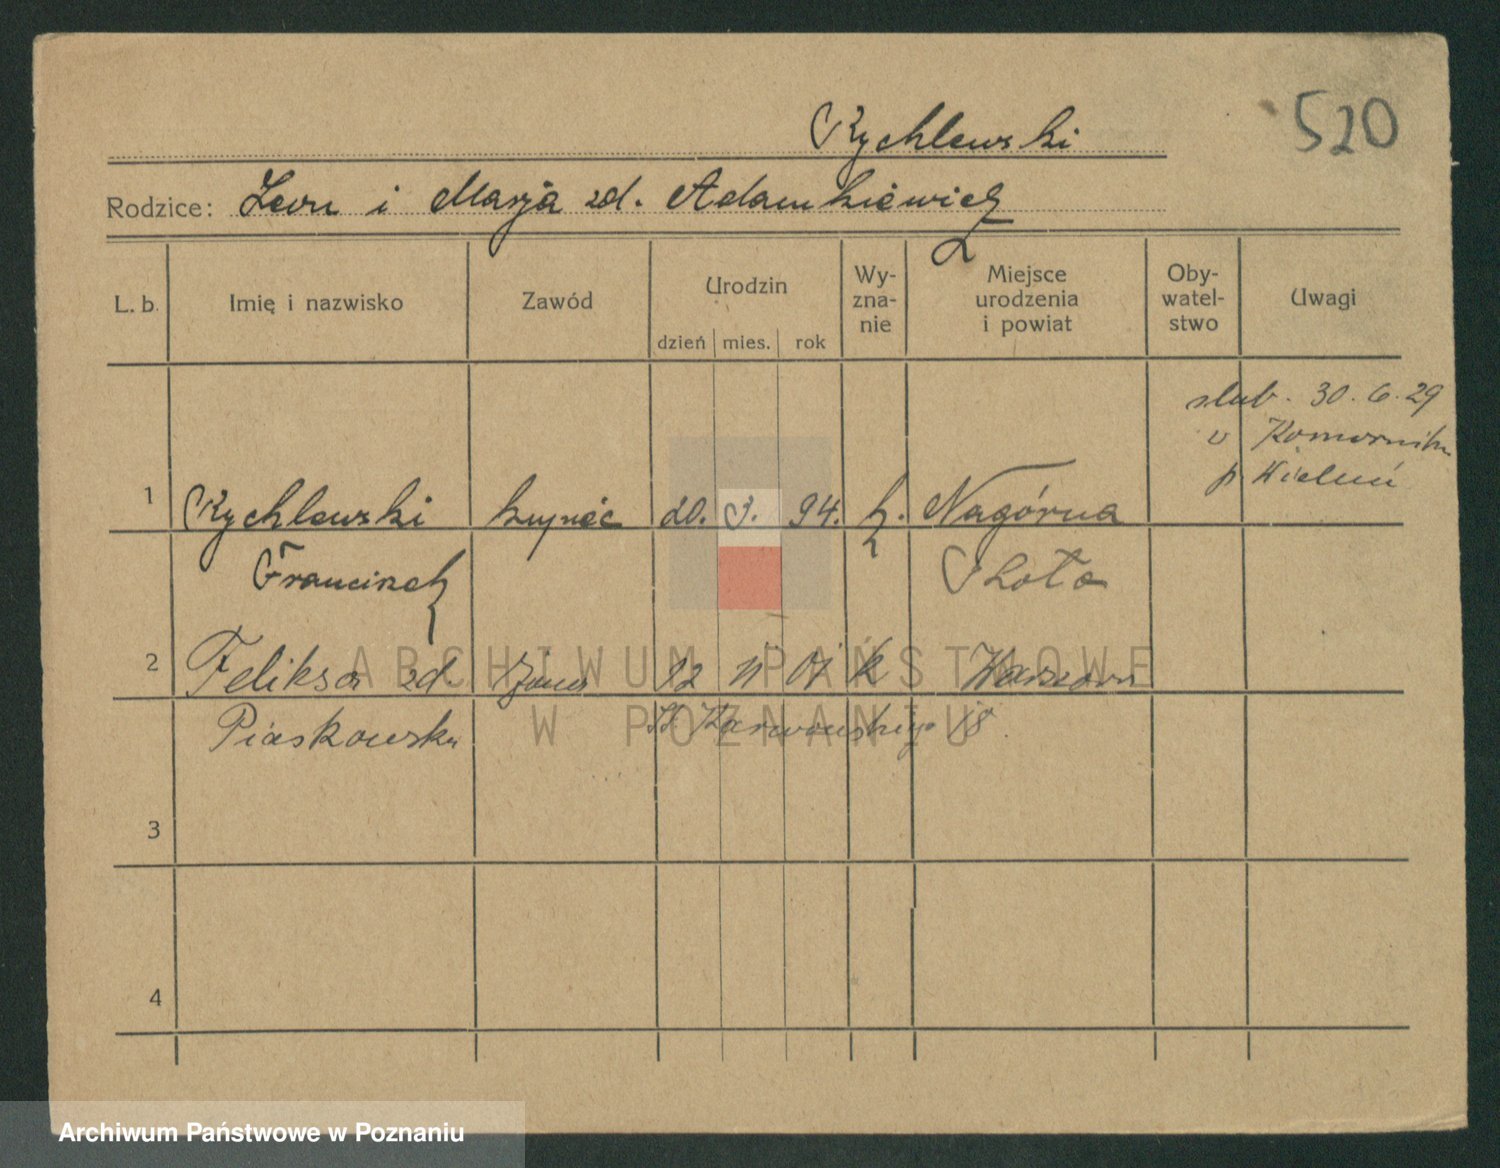 Rychlewski
520
Rodzice: Leon i Marja zd. Adamkiewicz
L. b. Imię i nazwisko Zawód Urodzin dzień mies. rok Wy-zna-nie Miejsce urodzenia i powiat Oby-watel-stwo Uwagi
ślub. 30. 6. 29
w Komorniku
p Wieluń
1 Rychlewski kupiec 20. 94. k. Nagórna
Franciszek
2 Feliksa zd. żona 12 11 01 k Warszawa
Piaskowska 18
3
4
ARCHIWUM PAŃSTWOWE
W POZNANIU
Archiwum Państwowe w Poznaniu